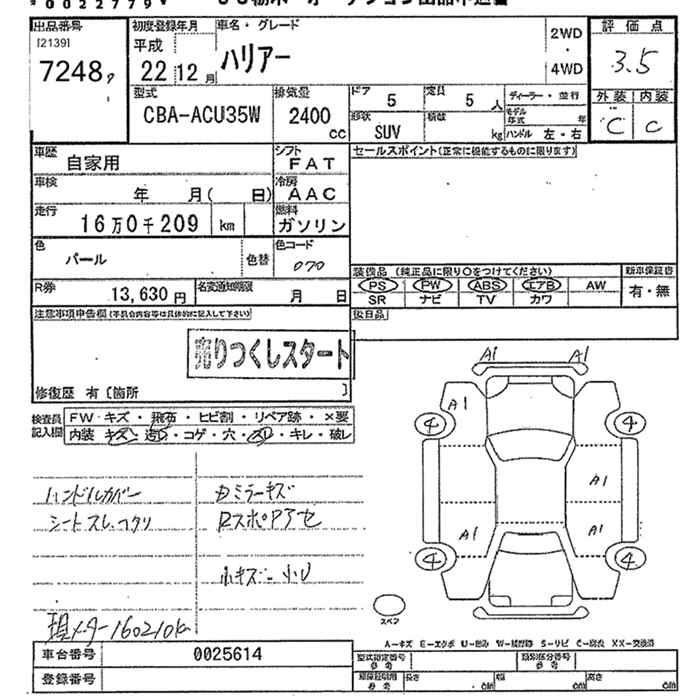 出品番号
[2139]
7248
初度登録年月
平成
22 12 月
車名・グレード
ハリアー
2WD
・
4WD
評価点
3.5
外装 内装
C C
型式
CBA-ACU35W
排気量
2400
cc
ドア
5
定員
5 人
形状
SUV
積載
kg
ディーラー・並行
モデル
年式 年
ハンドル 左・右
車歴
自家用
シフト
FAT
セールスポイント(正常に機能するものに限ります)
車検
年 月( 日)
冷房
AAC
走行
16万0千209 km
燃料
ガソリン
色
パール
色替
色コード
070
R券
13,630 円
名変通知期限
月 日
装備品 (純正品に限り○をつけてください)
PS PW ABS エアB AW
SR ナビ TV カワ
新車保証書
有・無
後日品
注意事項申告欄(不具合内容等は具体的に記入して下さい)
売りつくしスタート
修復歴 有〔箇所 〕
検査員
記入欄
FW キズ・飛石・ヒビ割・リペア跡・×要
内装 キズ・汚れ・コゲ・穴・スレ・キレ・破レ
ハンドルカバー
シートスレ、
ミラーキズ
小キズ 小U
現メーター160210k
A1 A1
A1
4 4
A1
A1 A1
4 4
スペア
A-キズ E-エクボ U-凹み W-補修跡 S-サビ C-腐食 XX-交換済
車台番号
0025614
登録番号
型式指定番号
参考
類別区分番号
参考
参考
長さ cm
幅 cm
高さ cm